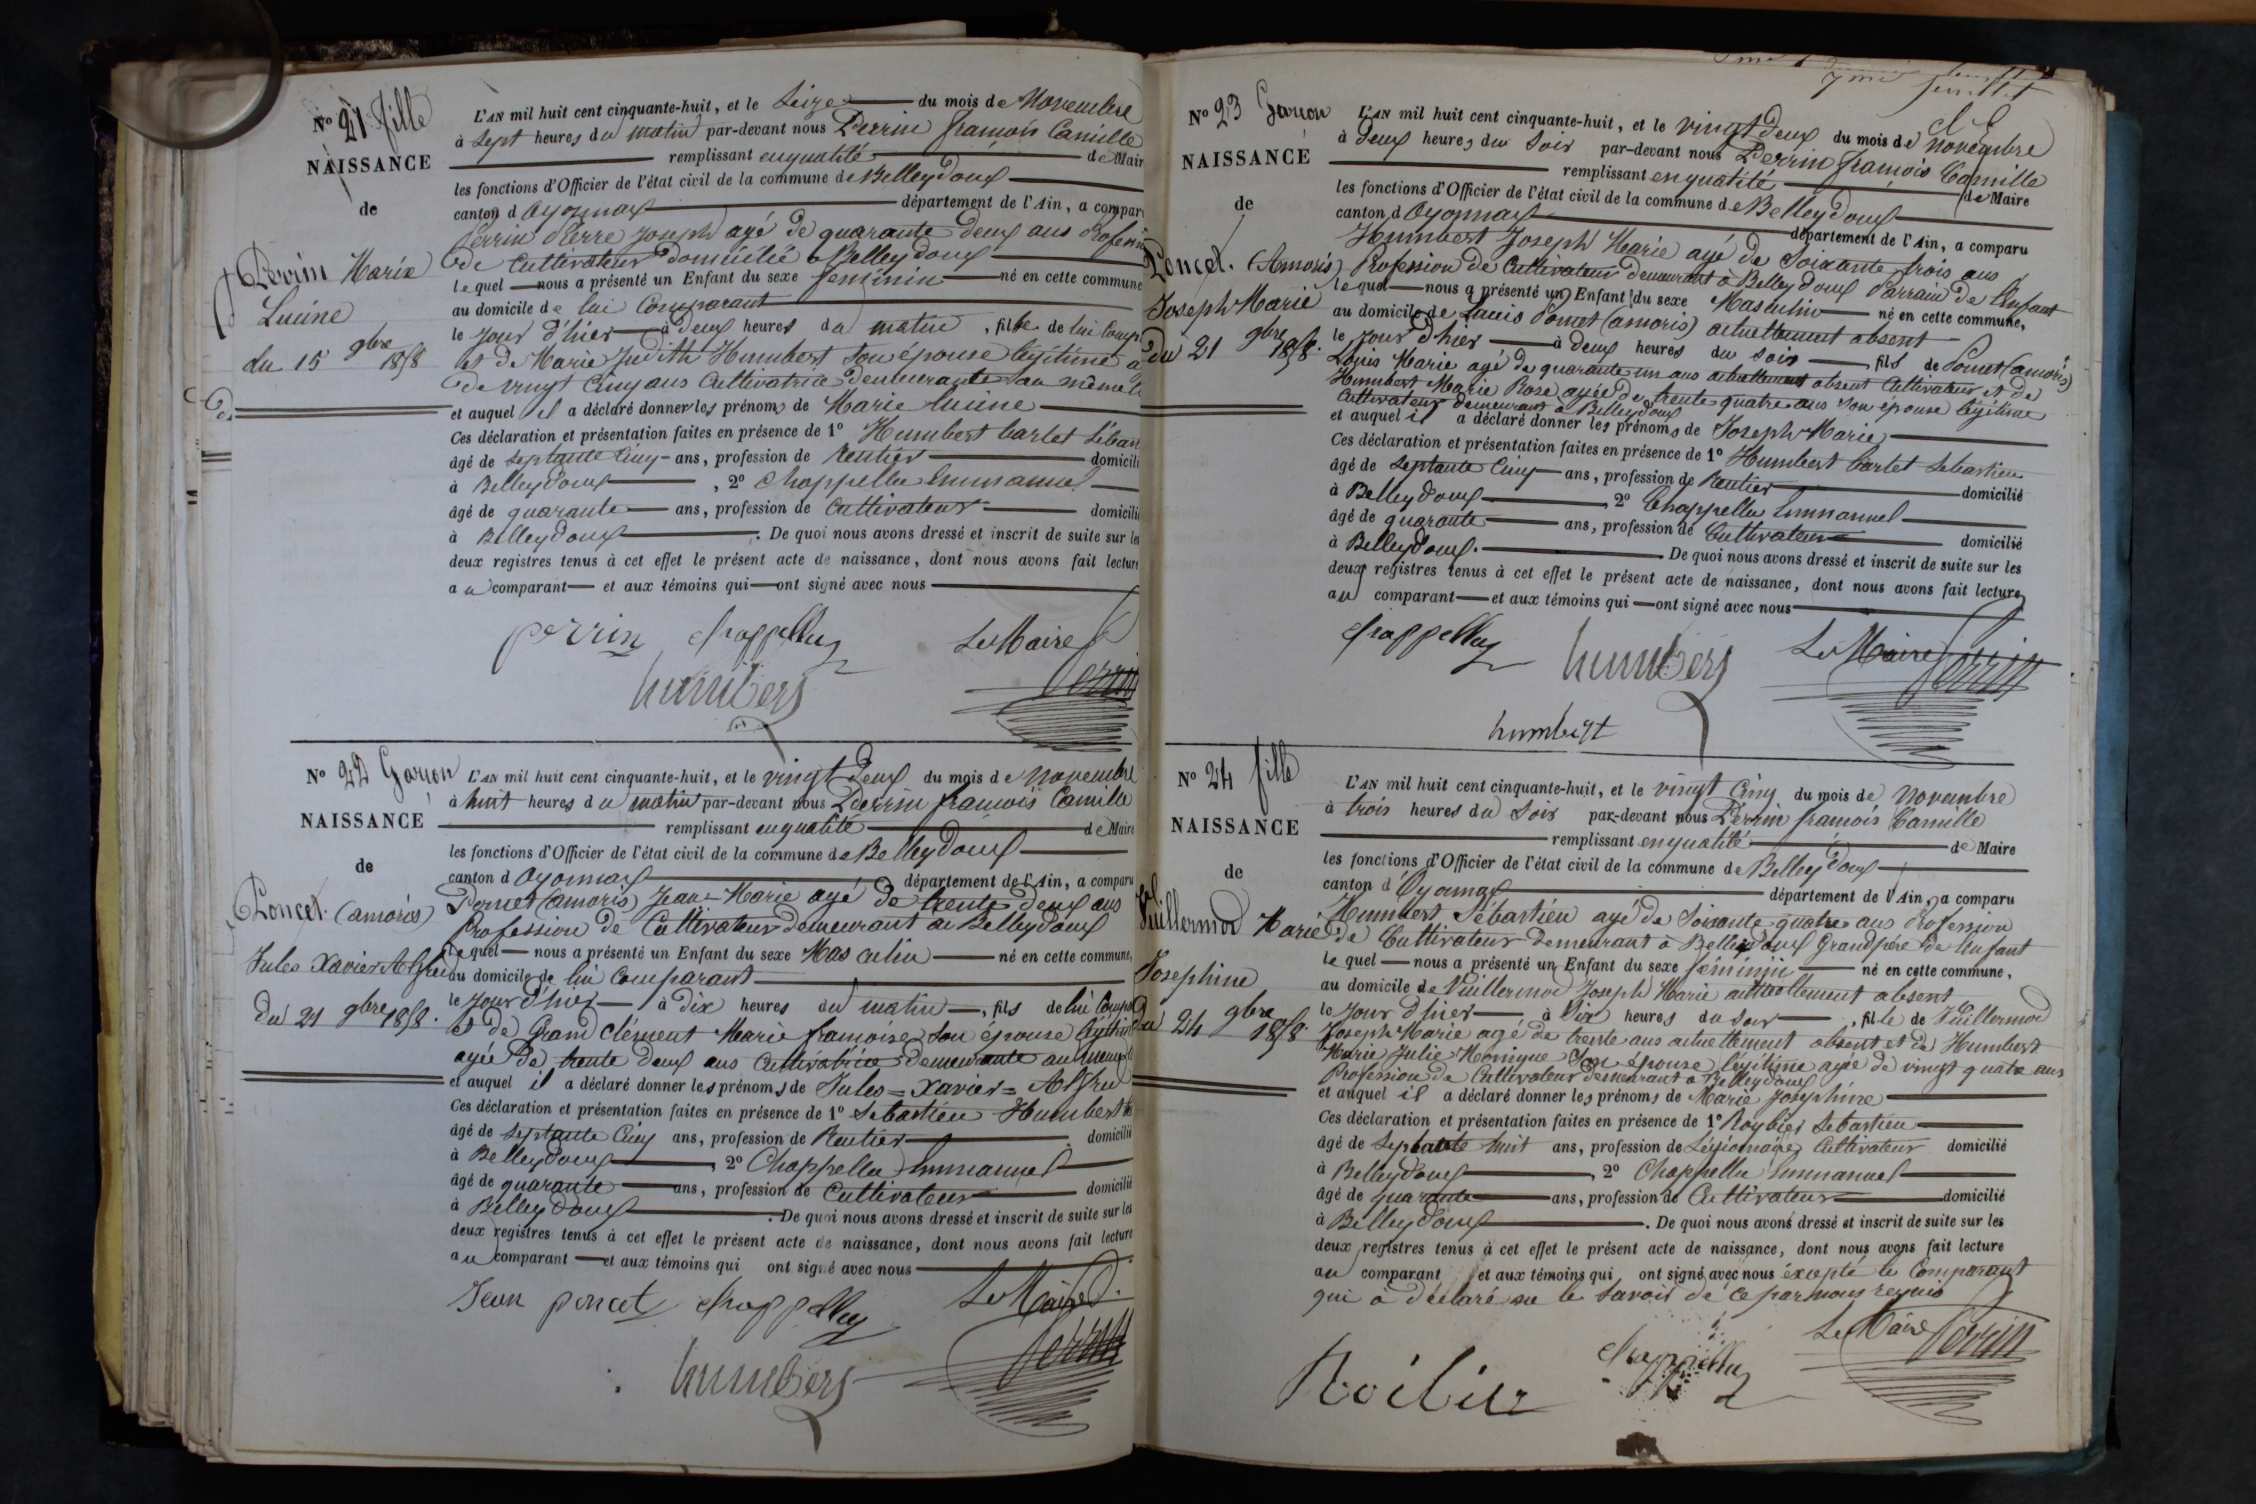 N° 21 fille
NAISSANCE
de
Perrin Marie
Lucine
du 15 9bre 1858
L'AN mil huit cent cinquante-huit, et le Seize du mois de Novembre
à Sept heures du matin par-devant nous Perrin françois Camille
remplissant enqualité de Mair
les fonctions d'Officier de l'état civil de la commune de Belleydoux
canton d Oyonnax département de l'Ain, a compar
Perrin Pierre Joseph agé de quarante deux ans Profession
de Cultivateur domicilié à Belleydoux
lequel nous a présenté un Enfant du sexe feminin né en cette commune
au domicile de lui Comparant
le jour d'hier à deux heures du matin , fille de lui Comp
et de Marie Judith Humbert Son épouse légitime a
de vingt Cinq ans Cultivatrice demeurante au même
et auquel il a déclaré donner les prénoms de Marie Lucine
Ces déclaration et présentation faites en présence de 1° Humbert Cartet Sébast
âgé de Septante Cinq ans, profession de Rentier domicili
à Belleydoux , 2° Chappellu Emmanuel
âgé de quarante ans, profession de Cultivateur domicili
à Belleydoux . De quoi nous avons dressé et inscrit de suite sur le
deux registres tenus à cet effet le présent acte de naissance, dont nous avons fait lecture
au comparant et aux témoins qui ont signé avec nous
perrin chappellu Le Maire
humbert Perrin
N° 22 Garçon
NAISSANCE
de
Poncet (amoris)
Jules Xavier Alfre
du 21 9bre 1858.
L'AN mil huit cent cinquante-huit, et le vingt Deux du mois de Novembre
à huit heures du matin par-devant nous Perrin françois Camille
remplissant enqualité de Maire
les fonctions d'Officier de l'état civil de la commune de Belleydoux
canton d Oyonnax département de l'Ain, a comparu
Poncet (amoris) Jean-Marie agé de trente deux ans
Profession de Cultivateur demeurant à Belleydoux
lequel nous a présenté un Enfant du sexe Masculin né en cette commune,
au domicile de lui Comparant
le jour d'hier à dix heures du matin , fils de lui Comp
et de Grand Clément Marie françoise Son épouse légitime
agée de trente deux ans Cultivatrice demeurante au même
et auquel il a déclaré donner les prénoms de Jules = Xavier = Alfre
Ces déclaration et présentation faites en présence de 1° Sebastien Humbert
âgé de Septante Cinq ans, profession de Rentier domicilié
à Belleydoux , 2° Chappellu Emmanuel
âgé de quarante ans, profession de Cultivateur domicilié
à Belleydoux . De quoi nous avons dressé et inscrit de suite sur les
deux registres tenus à cet effet le présent acte de naissance, dont nous avons fait lecture
au comparant et aux témoins qui ont signé avec nous
Jean poncet chappellu Le Maire
humbert Perrin
7me feuillet
N° 23 Garçon
NAISSANCE
de
Poncet. (Amoris)
Joseph Marie
du 21 9bre 1858.
L'AN mil huit cent cinquante-huit, et le vingt Deux du mois de Novembre
à Deux heures du Soir par-devant nous Perrin françois Camille
remplissant enqualité de Maire
les fonctions d'Officier de l'état civil de la commune de Belleydoux
canton d Oyonnax département de l'Ain, a comparu
Humbert Joseph Marie agé de Soixante trois ans
Profession de Cultivateur demeurant à Belleydoux Parrain de l'Enfant
lequel nous a présenté un Enfant du sexe Masculin né en cette commune,
au domicile de Louis Poncet (amoris) actuellement absent
le jour d'hier à deux heures du soir fils de Poncet (amoris)
Louis Marie agé de quarante un ans actuellement absent Cultivateur et de
Humbert Marie Rose agée de trente quatre ans son épouse légitime
Cultivateur demeurant à Belleydoux
et auquel il a déclaré donner les prénoms de Joseph Marie
Ces déclaration et présentation faites en présence de 1° Humbert Cartet Sebastien
âgé de Septante Cinq ans, profession de Rentier domicilié
à Belleydoux 2° Chappellu Emmanuel
âgé de quarante ans, profession de Cultivateur domicilié
à Belleydoux. De quoi nous avons dressé et inscrit de suite sur les
deux registres tenus à cet effet le présent acte de naissance, dont nous avons fait lecture
au comparant et aux témoins qui ont signé avec nous
chappellu humbert Le Maire Perrin
humbert
N° 24 fille
NAISSANCE
de
Vuillermod Marie
Josephine
Du 24 9bre 1858
L'AN mil huit cent cinquante-huit, et le vingt Cinq du mois de Novembre
à trois heures du Soir par-devant nous Perrin françois Camille
remplissant enqualité de Maire
les fonctions d'Officier de l'état civil de la commune de Belleydoux
canton d'Oyonnax département de l'Ain, a comparu
Humbert Sébastien agé de Soixante quatre ans Profession
de Cultivateur demeurant à Belleydoux Grand père de l'enfant
lequel nous a présenté un Enfant du sexe féminin né en cette commune,
au domicile de Vuillermod Joseph Marie actuellement absent
le jour d'hier à Six heures du soir , fille de Vuillermod
Joseph Marie agé de trente ans actuellement absent et de Humbert
Marie Julie Monique Son épouse légitime agée de vingt quatre ans
Profession de Cultivateur demeurant à Belleydoux
et auquel il a déclaré donner les prénoms de Marie Joséphine
Ces déclaration et présentation faites en présence de 1° Roybier Sebastien
âgé de Septante huit ans, profession de Légionnaire Cultivateur domicilié
à Belleydoux , 2° Chappellu Emmanuel
âgé de quarante ans, profession de Cultivateur domicilié
à Belleydoux . De quoi nous avons dressé et inscrit de suite sur les
deux registres tenus à cet effet le présent acte de naissance, dont nous avons fait lecture
au comparant et aux témoins qui ont signé avec nous éxcepté le Comparant
qui à déclaré ne le Savoir de ce par nous réquis
Le Maire Perrin
chappellu